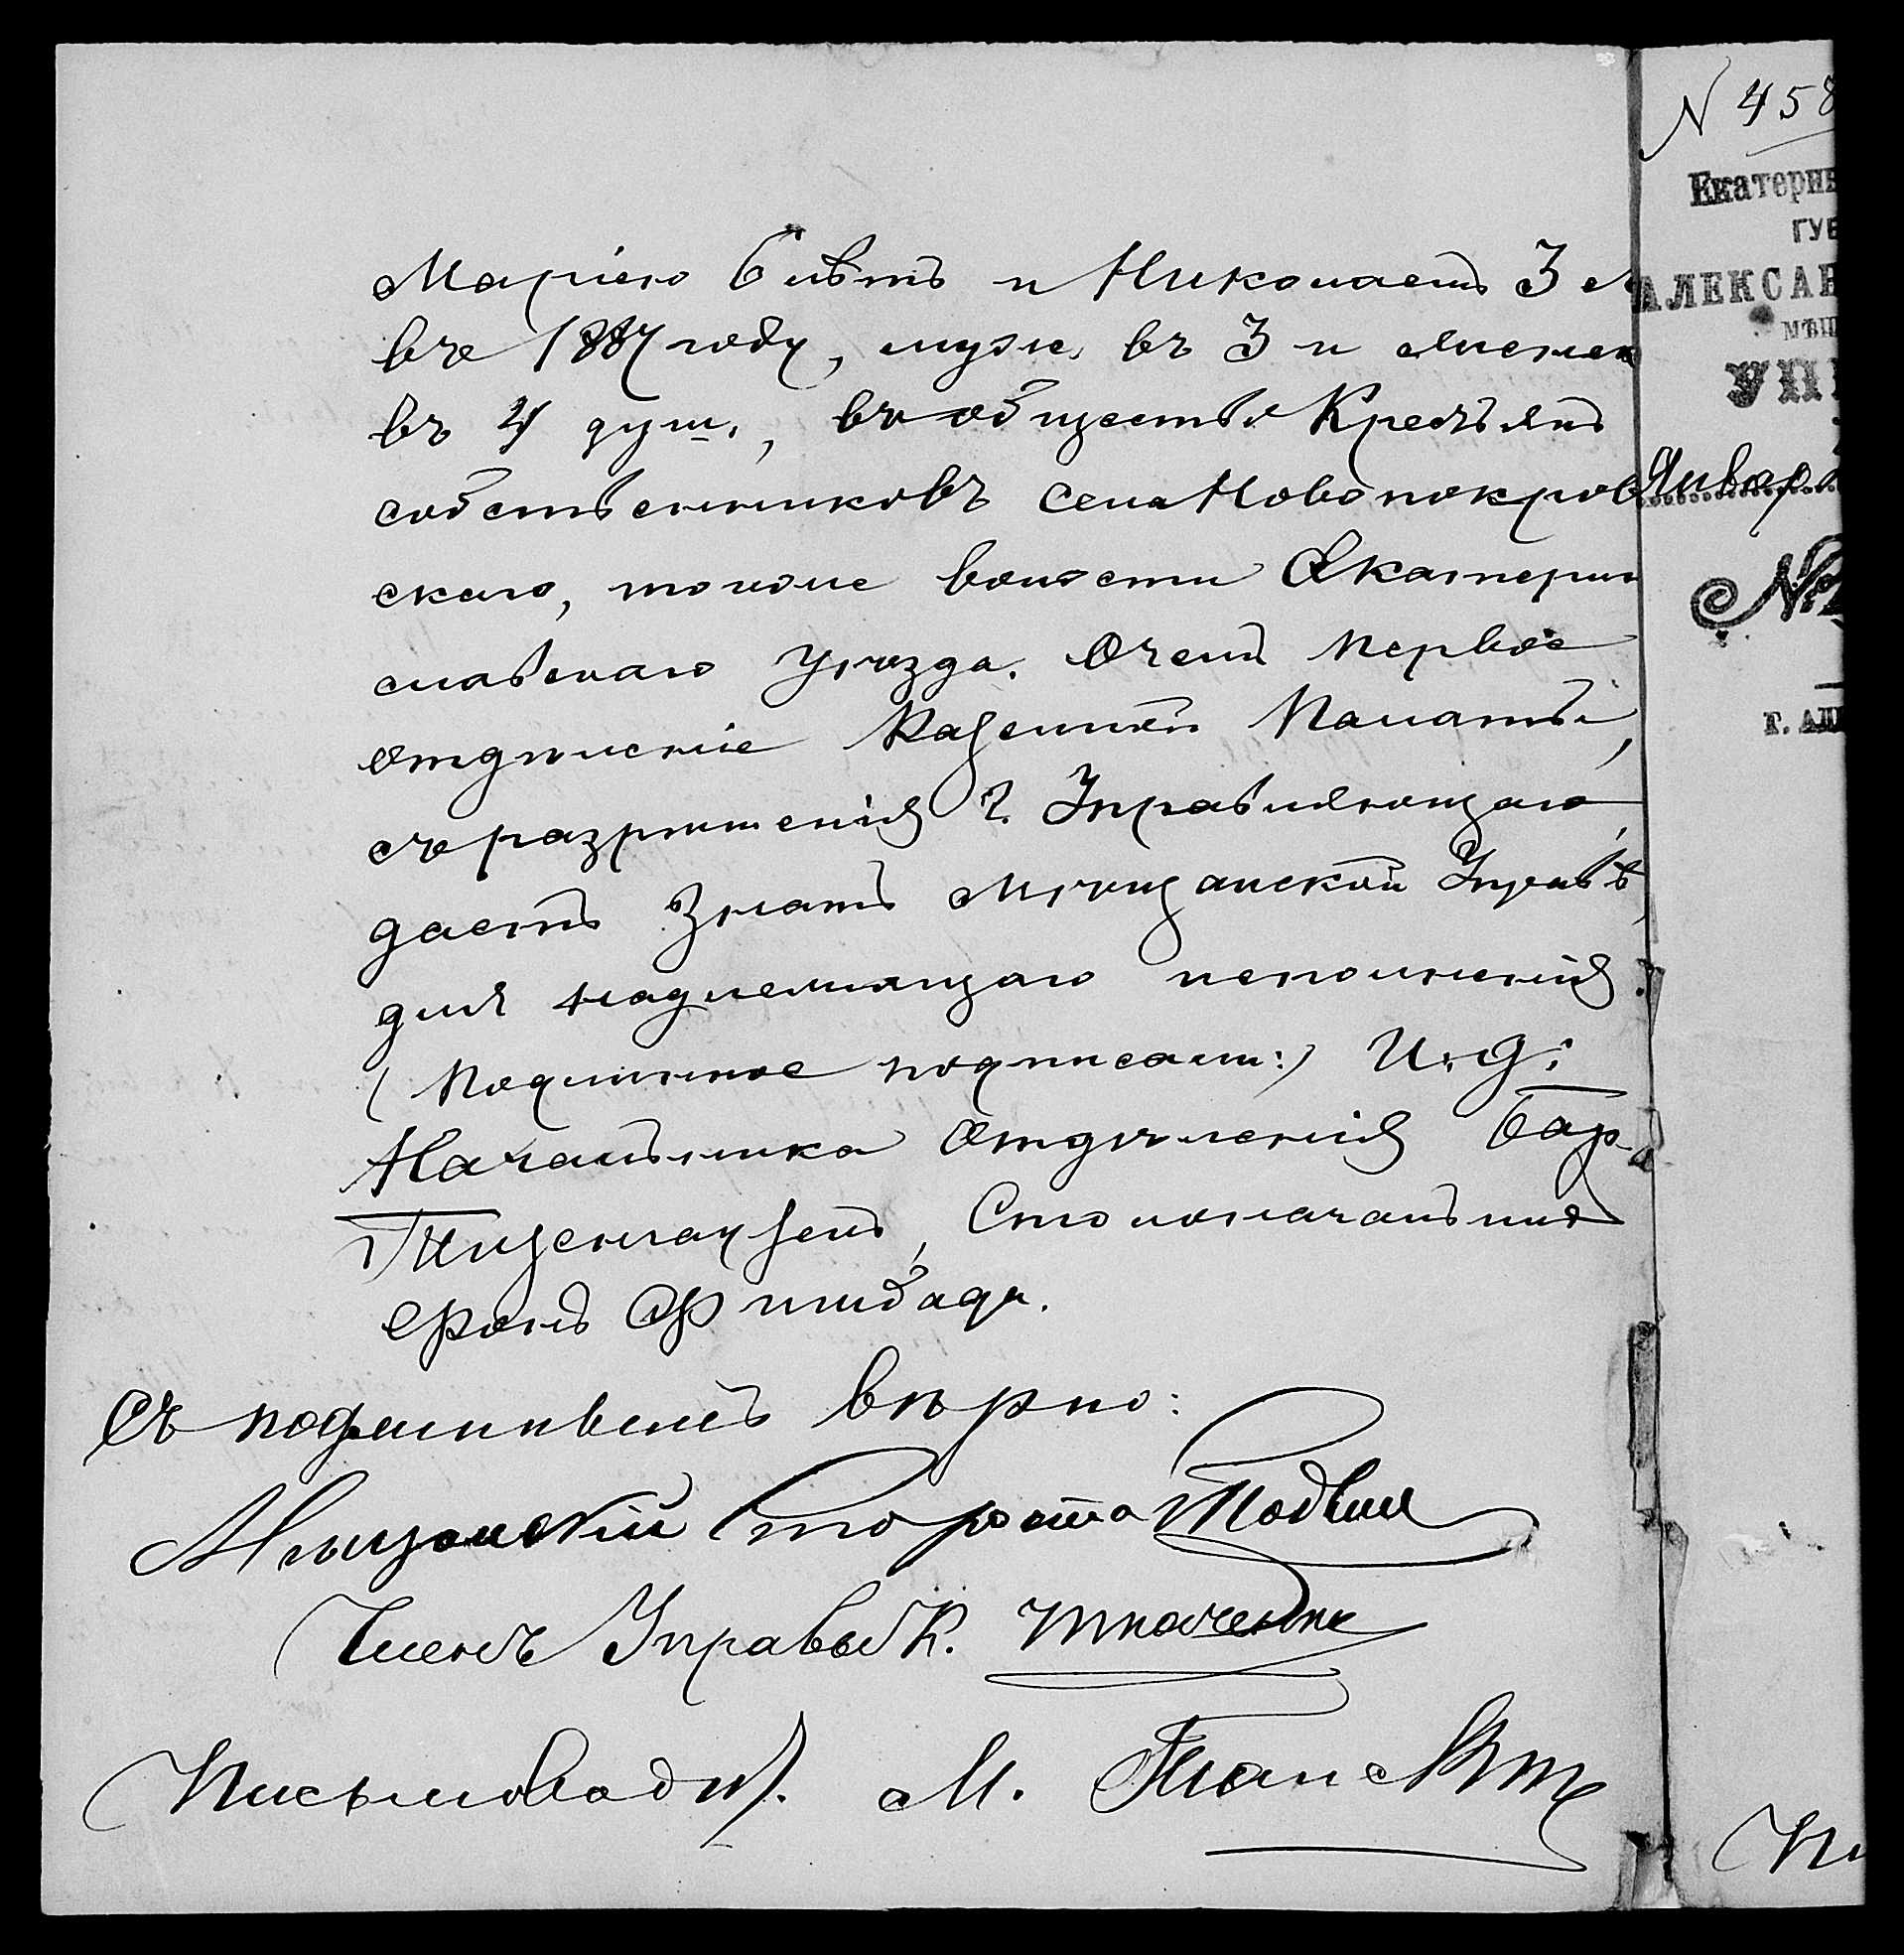 Маріею 6 лѣтъ и Николаемъ 3 л
въ 1887 году, муж. въ 3 и женск
въ 4 душ., въ общество Крестьянъ
собственниковъ села Новопокров
скаго, тогоже волости Екатерин
славскаго уѣзда. О чемъ первое
отдѣленіе Казенной Палаты,
съ разрѣшенія г. Управляющаго,
даетъ знать Мѣщанской Управѣ,
для надлежащаго исполненія.
(Подлинное подписали:) И. д.
Начальника Отдѣленія Бар.
Тизенгаузенъ, Столоначальникъ
фонъ
Съ подлиннымъ вѣрно:
Мѣщанскій Староста
Членъ Управы К. Ткаченко
Письмовод. М.
N 458
Екатерин
ГУБ
АЛЕКСАН
МѢЩ
УПР
Январ
№
г. АЛЕ